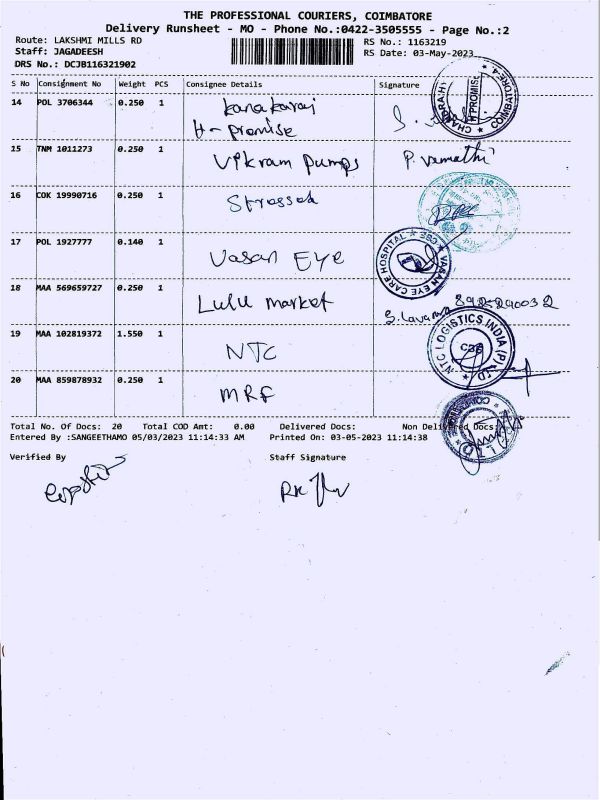 THE PROFESSIONAL COURIERS, COIMBATORE
Delivery Runsheet - MO - Phone No.:0422-3505555 - Page No.:2
Route: LAKSHMI MILLS RD RS No.: 1163219
Staff: JAGADEESH RS Date: 03-May-2023
DRS No.: DCJB116321902
S No Consignment No Weight PCS Consignee Details Signature
14 POL 3706344 0.250 1 Kanakaraj
H-promise
CHANDRA HI H PROMISE COIMBATORE
15 TNM 1011273 0.250 1 Vikram Pumps P. Vamathi
16 COK 19990716 0.250 1
17 POL 1927777 0.140 1 Vasan Eye
VASAN EYE CARE HOSPITAL
18 MAA 569659727 0.250 1 Lulu market S. Lavanya
19 MAA 102819372 1.550 1 NTC
NTC LOGISTICS INDIA (P) LTD
CBE
20 MAA 859878932 0.250 1 MRF
Total No. Of Docs: 20 Total COD Amt: 0.00 Delivered Docs: Non Delivered Docs:
Entered By :SANGEETHAMO 05/03/2023 11:14:33 AM Printed On: 03-05-2023 11:14:38
Verified By Staff Signature